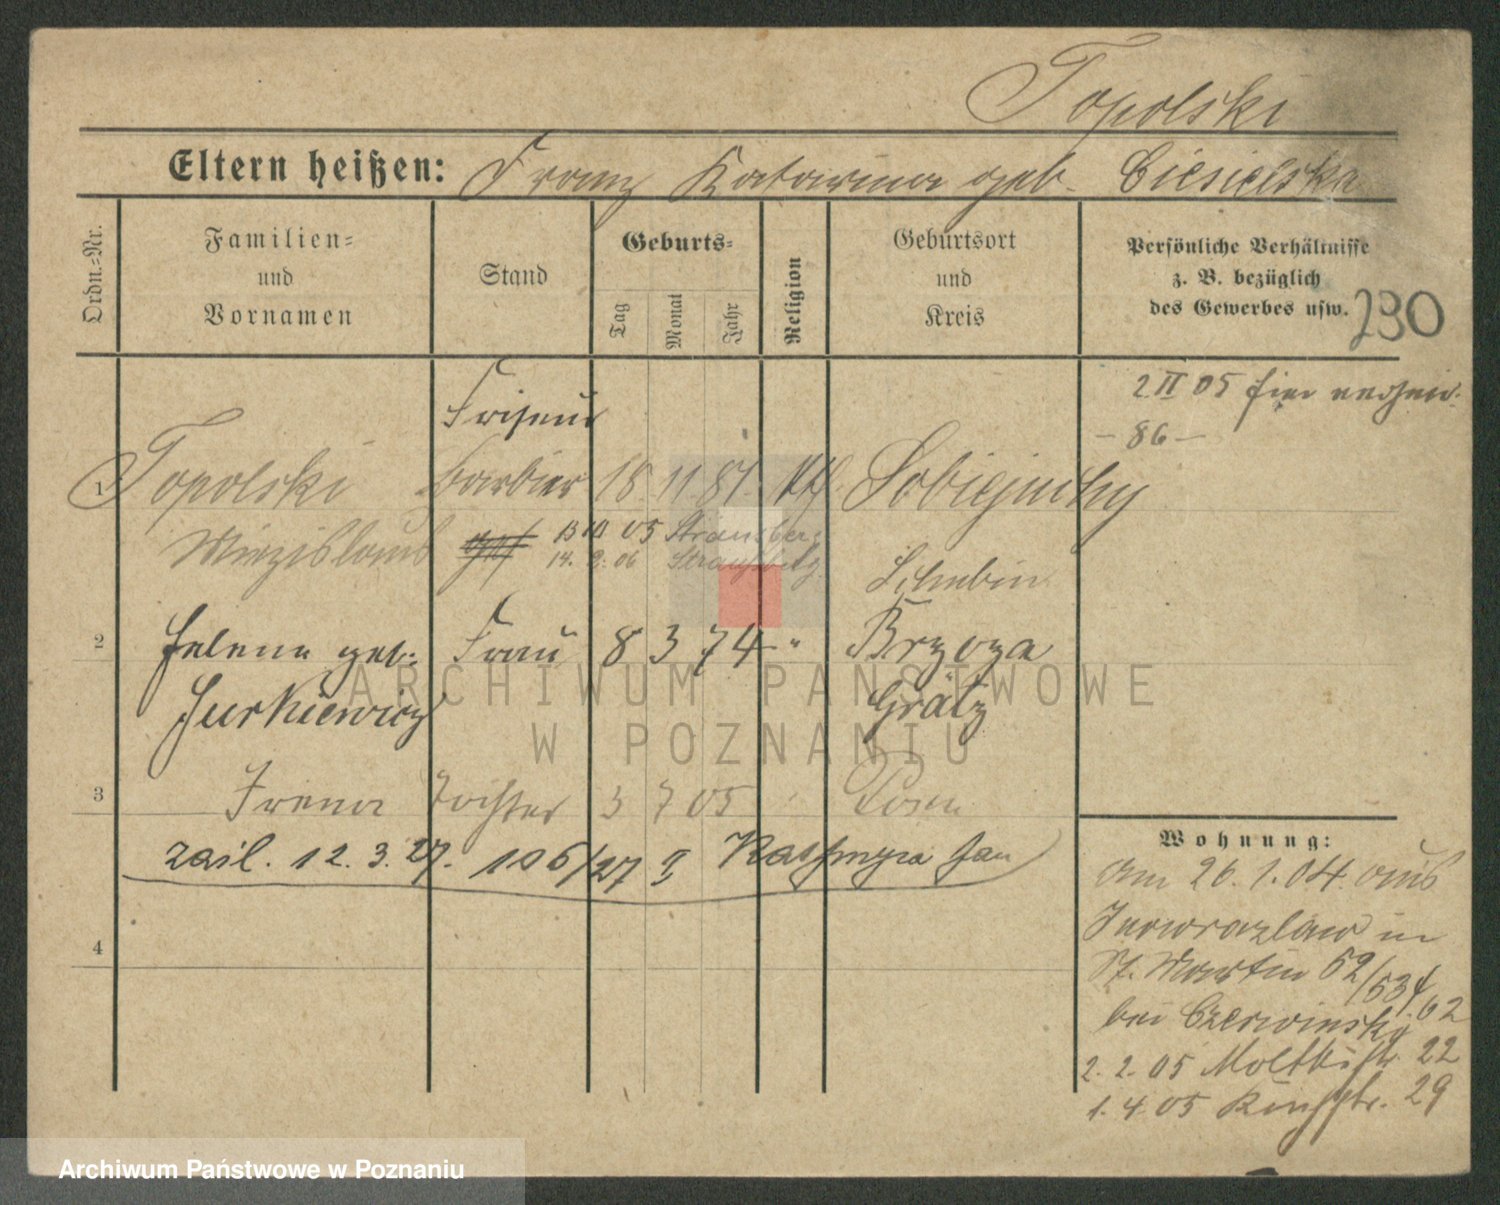 Topolski
Eltern heißen: Franz Katarina geb. Ciesielska
Ordn.-Nr.
Familien-
und
Vornamen
Stand
Geburts-
Tag
Monat
Jahr
Religion
Geburtsort
und
Kreis
Persönliche Verhältnisse
z. B. bezüglich
des Gewerbes usw.
230
2 II 05 hier
– 86 –
Friseur
1 Topolski Barbier 18 11 81 Kth
Miezislaus 13 05 Strausberg
14. 9. 06 Strausberg
Schubin
2 Helene geb. Frau 8 3 74 " Brzoza
Jurkiewicz Grätz
3 Irena Tochter 3 7 05 Posen
zasil. 12. 3. 27. 106/27 Jan
4
Wohnung:
Am 26. 1. 04. aus
Inowrazlaw in
St. Martin 62/
bei Czerwinsky
2. 2. 05 Moltkestr. 22
1. 4. 05 29
ARCHIWUM PAŃSTWOWE
W POZNANIU
Archiwum Państwowe w Poznaniu